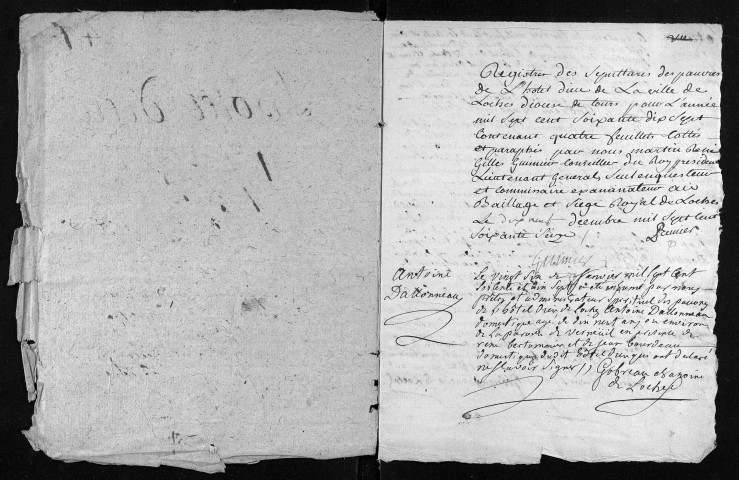 Registres des Sepultures des pauvres
de L'hotel dieu de La ville de
Loches diocese de tours pour L'année
mil Sept cent Soixante dix Sept
Contenant quatre feuillets Cottés
et paraphés par nous martin René
Gilles Guimier Conseiller du Roy president
Lieutenant general Seul enquesteur
et commissaire examinateur au
Bailliage et Siege Royal de Loches
Le dix neuf decembre mil Sept cent
Soixante Seize /.
Premier
Guimier
Antoine
Dallonneau
Le vingt Six de Janvier mil Sept cent
Soixante et dix Sept a été inhumé par nous
prêtre et administrateur Spirituel des pauvres
de l'hôtel Dieu de Loches Antoine Dallonneau
domestique agé de dix neuf ans ou environ
de la paroisse de Verneuil en présence de
rené bertomanier et de jean bourdeau
domestiques dudit hôtel Dieu qui ont declaré
ne Sçavoir Signer /) Gobreau chanoine
de Loches